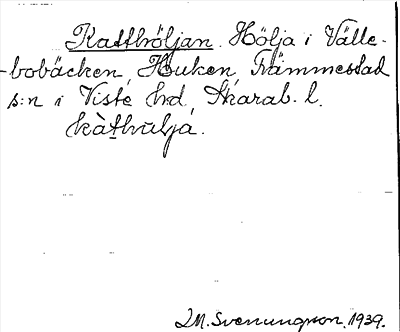 Katthöljan. Hölja i Välle-
-bobäcken, Huken, Främmestad
s:n i Viste hd, Skarab. l.
kàthuljá.
J.M. Svenungson. 1939.